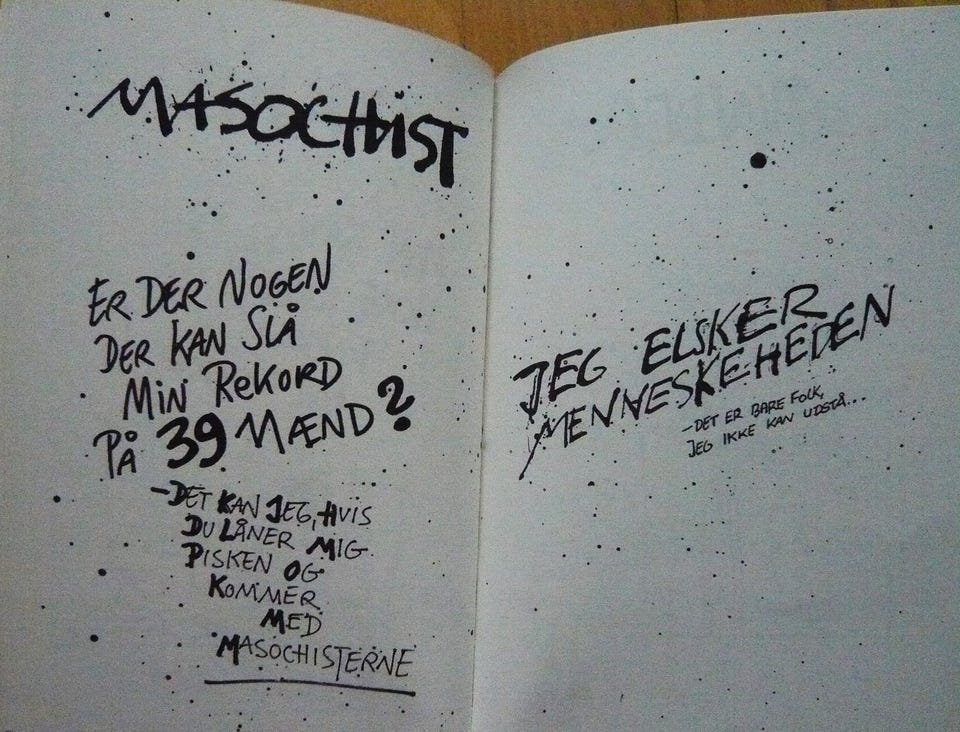 MASOCHIST
ER DER NOGEN
DER KAN SLÅ
MIN REKORD
PÅ 39 MÆND?
-DET KAN JEG, HVIS
DU LÅNER MIG
PISKEN OG
KOMMER
MED
MASOCHISTERNE
JEG ELSKER
MENNESKEHEDEN
-DET ER BARE FOLK,
JEG IKKE KAN UDSTÅ...